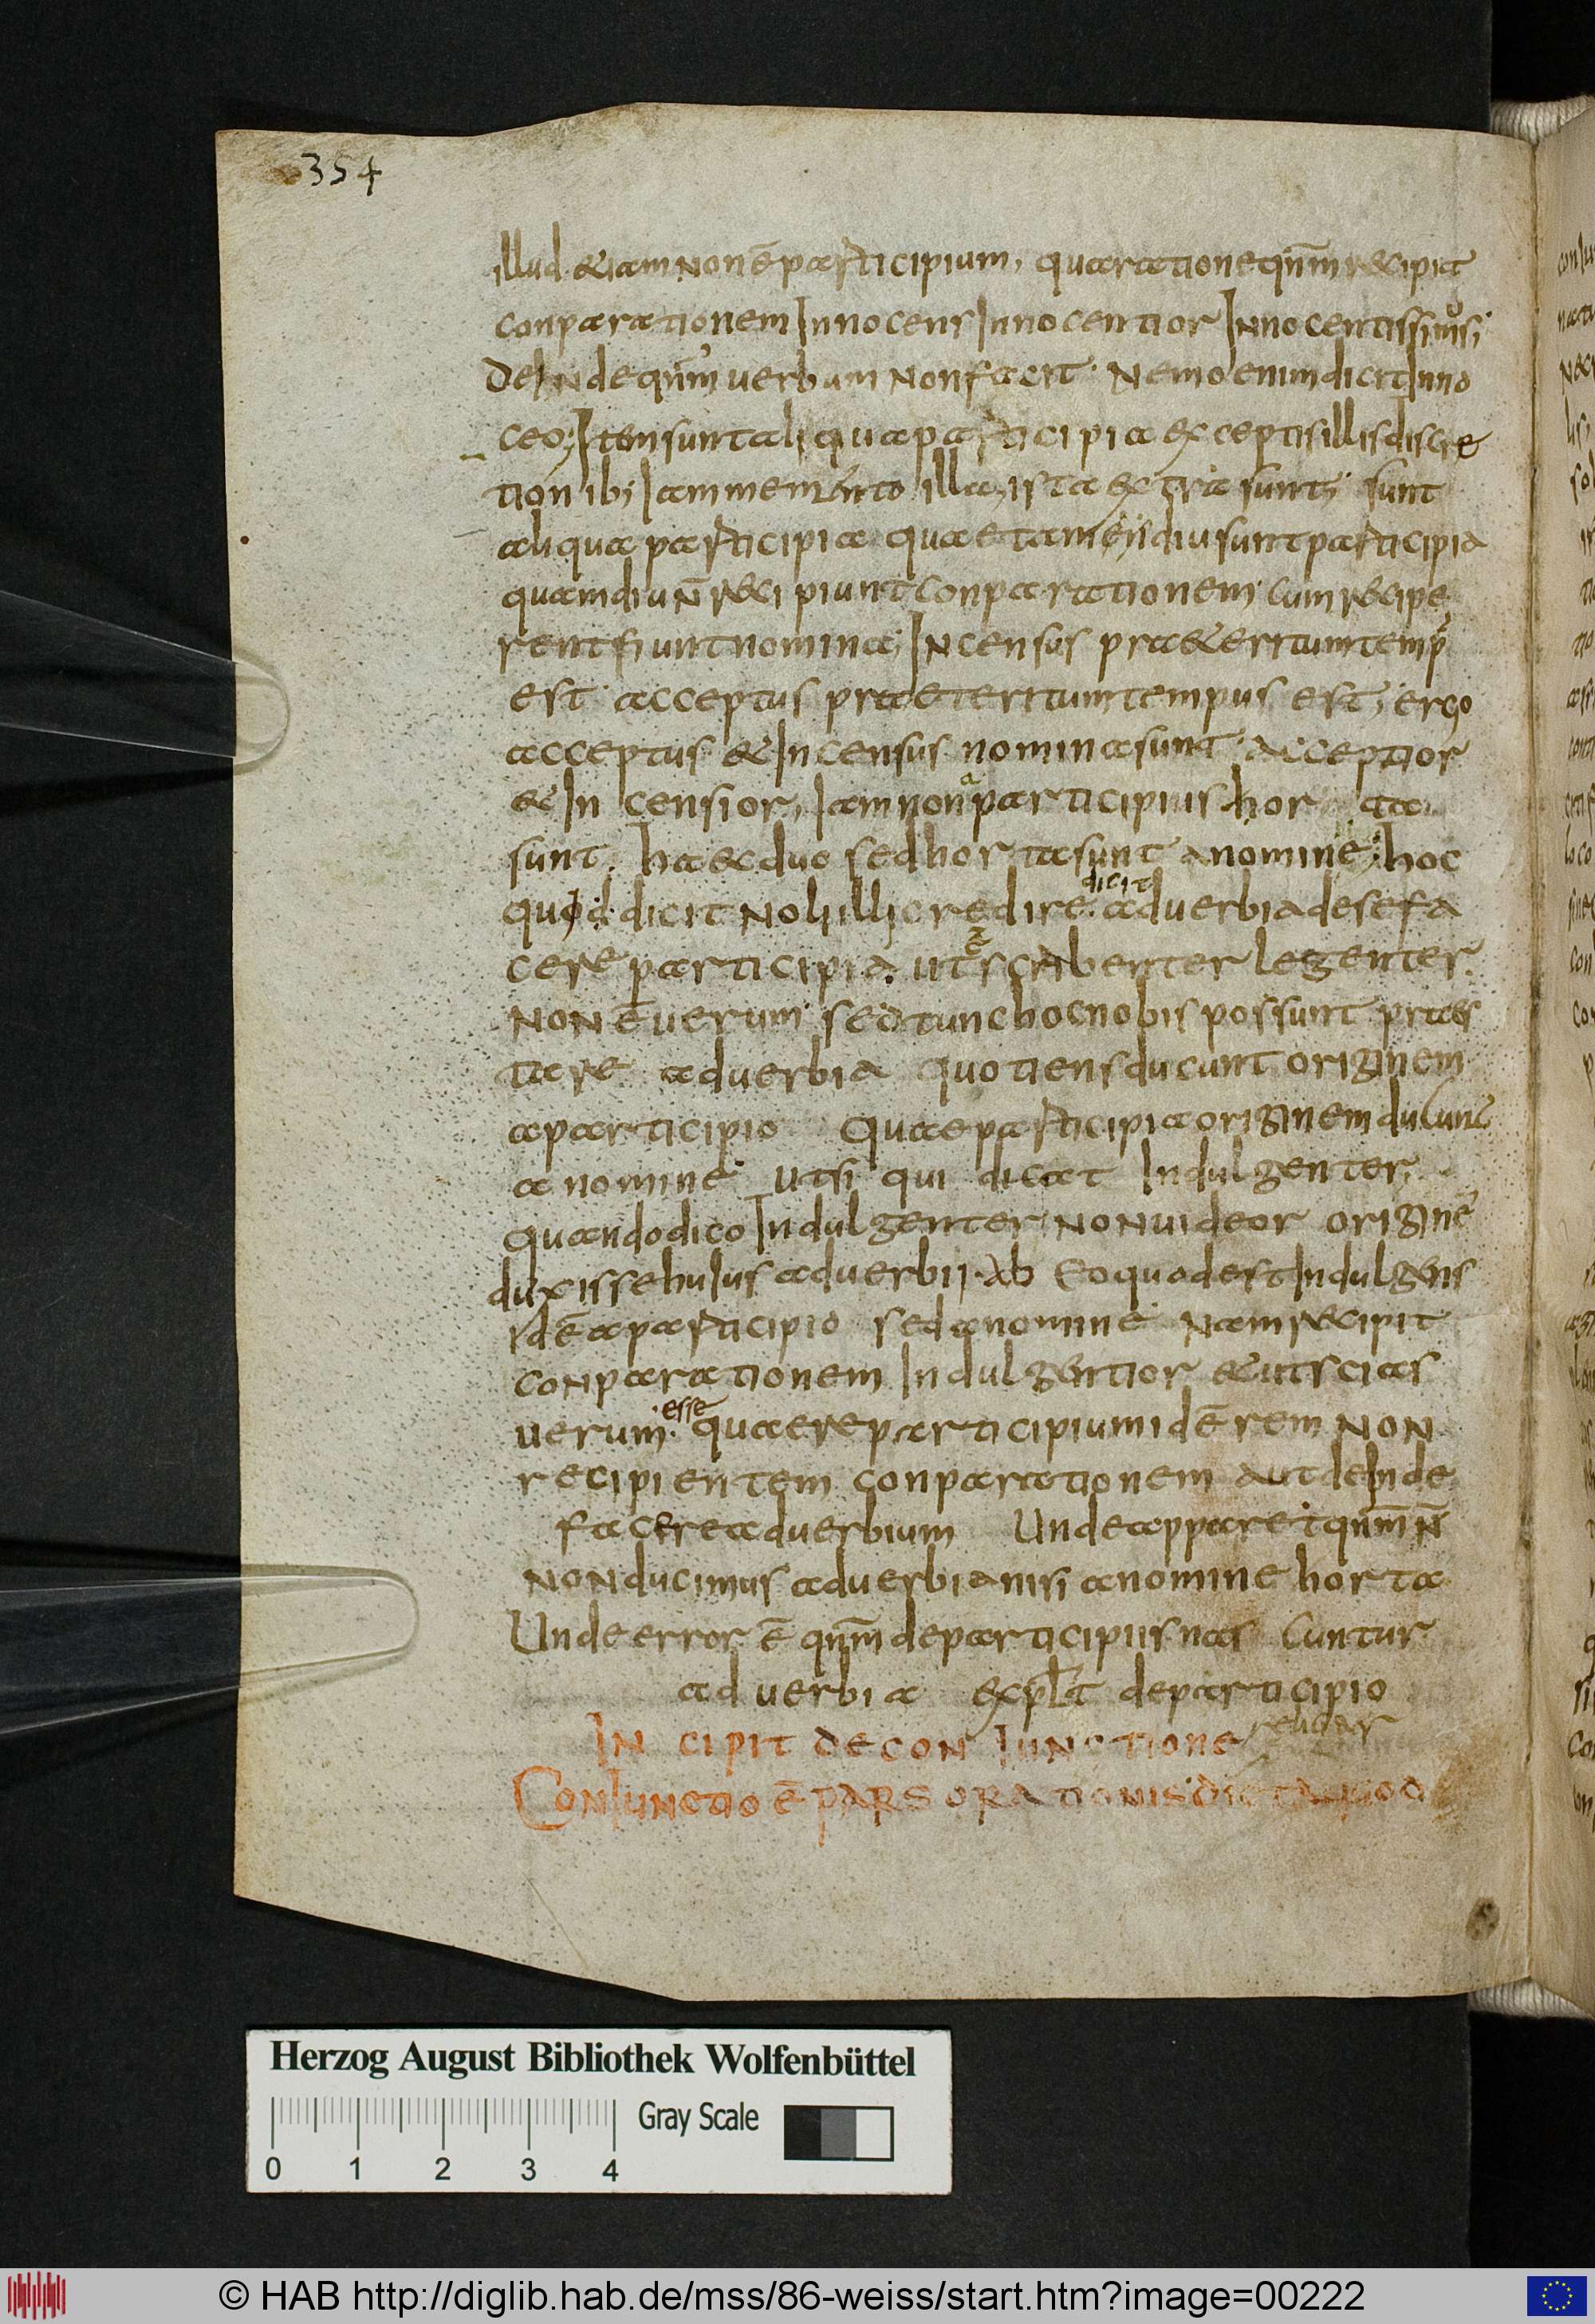 354
illud &iam non ē participium, qua ratione qnm̄ recipit
conparationem Innocens Innocentior Innocentissimus;
DeInde qnm̄ uerbum non facit. Nemo enim dicit Inno
ceo; Item sunt aliqua participia exceptis illis discre
tion ib; Iam memento illa, ista extra sunt; sunt
aliqua participia quae tamen diu sunt participia
quamdiu n̄ recipiunt conparationem. Cum recipe
rent fiunt nomina; Incensus praeteritum temp̄
est acceptus praeteritum tempus est, ergo
acceptus & Incensus nomina sunt. Acceptior
& In censior, Iam non a participiis hor ta
sunt. haec duo sed hor ta sunt a nomine; hoc
quod dicit noli illi credire. dicit aduerbia de se fa
cere participia. ut scribenter legenter.
Non ē uerum sed tunc hoc nobis possunt praes
tare aduerbia quotiens ducunt originem
a participio Quae participia originem ducunt
a nomine utsi qui dicat Indulgenter,
quando dico Indulgenter non uideor originē
duxisse huIus aduerbii. Ab Eo quod est Indulgens
id ē a participio sed a nomine Nam recipit
conparationem Indulgentior & ut scias
uerum. esse quaere participium id ē rem non
recipientem conparationem aut deInde
facere aduerbium Unde apparet qnm̄ n̄
non ducimus aduerbia nisi a nomine horta
Unde error ē qnm̄ de participiis nas cuntur
aduerbia explt̄ de participio
IN CIPIT DE CON IUNCTIONE
ConIunctio ē PARS ORATIONIS
Herzog August Bibliothek Wolfenbüttel
Gray Scale
0 1 2 3 4
© HAB http://diglib.hab.de/mss/86-weiss/start.htm?image=00222